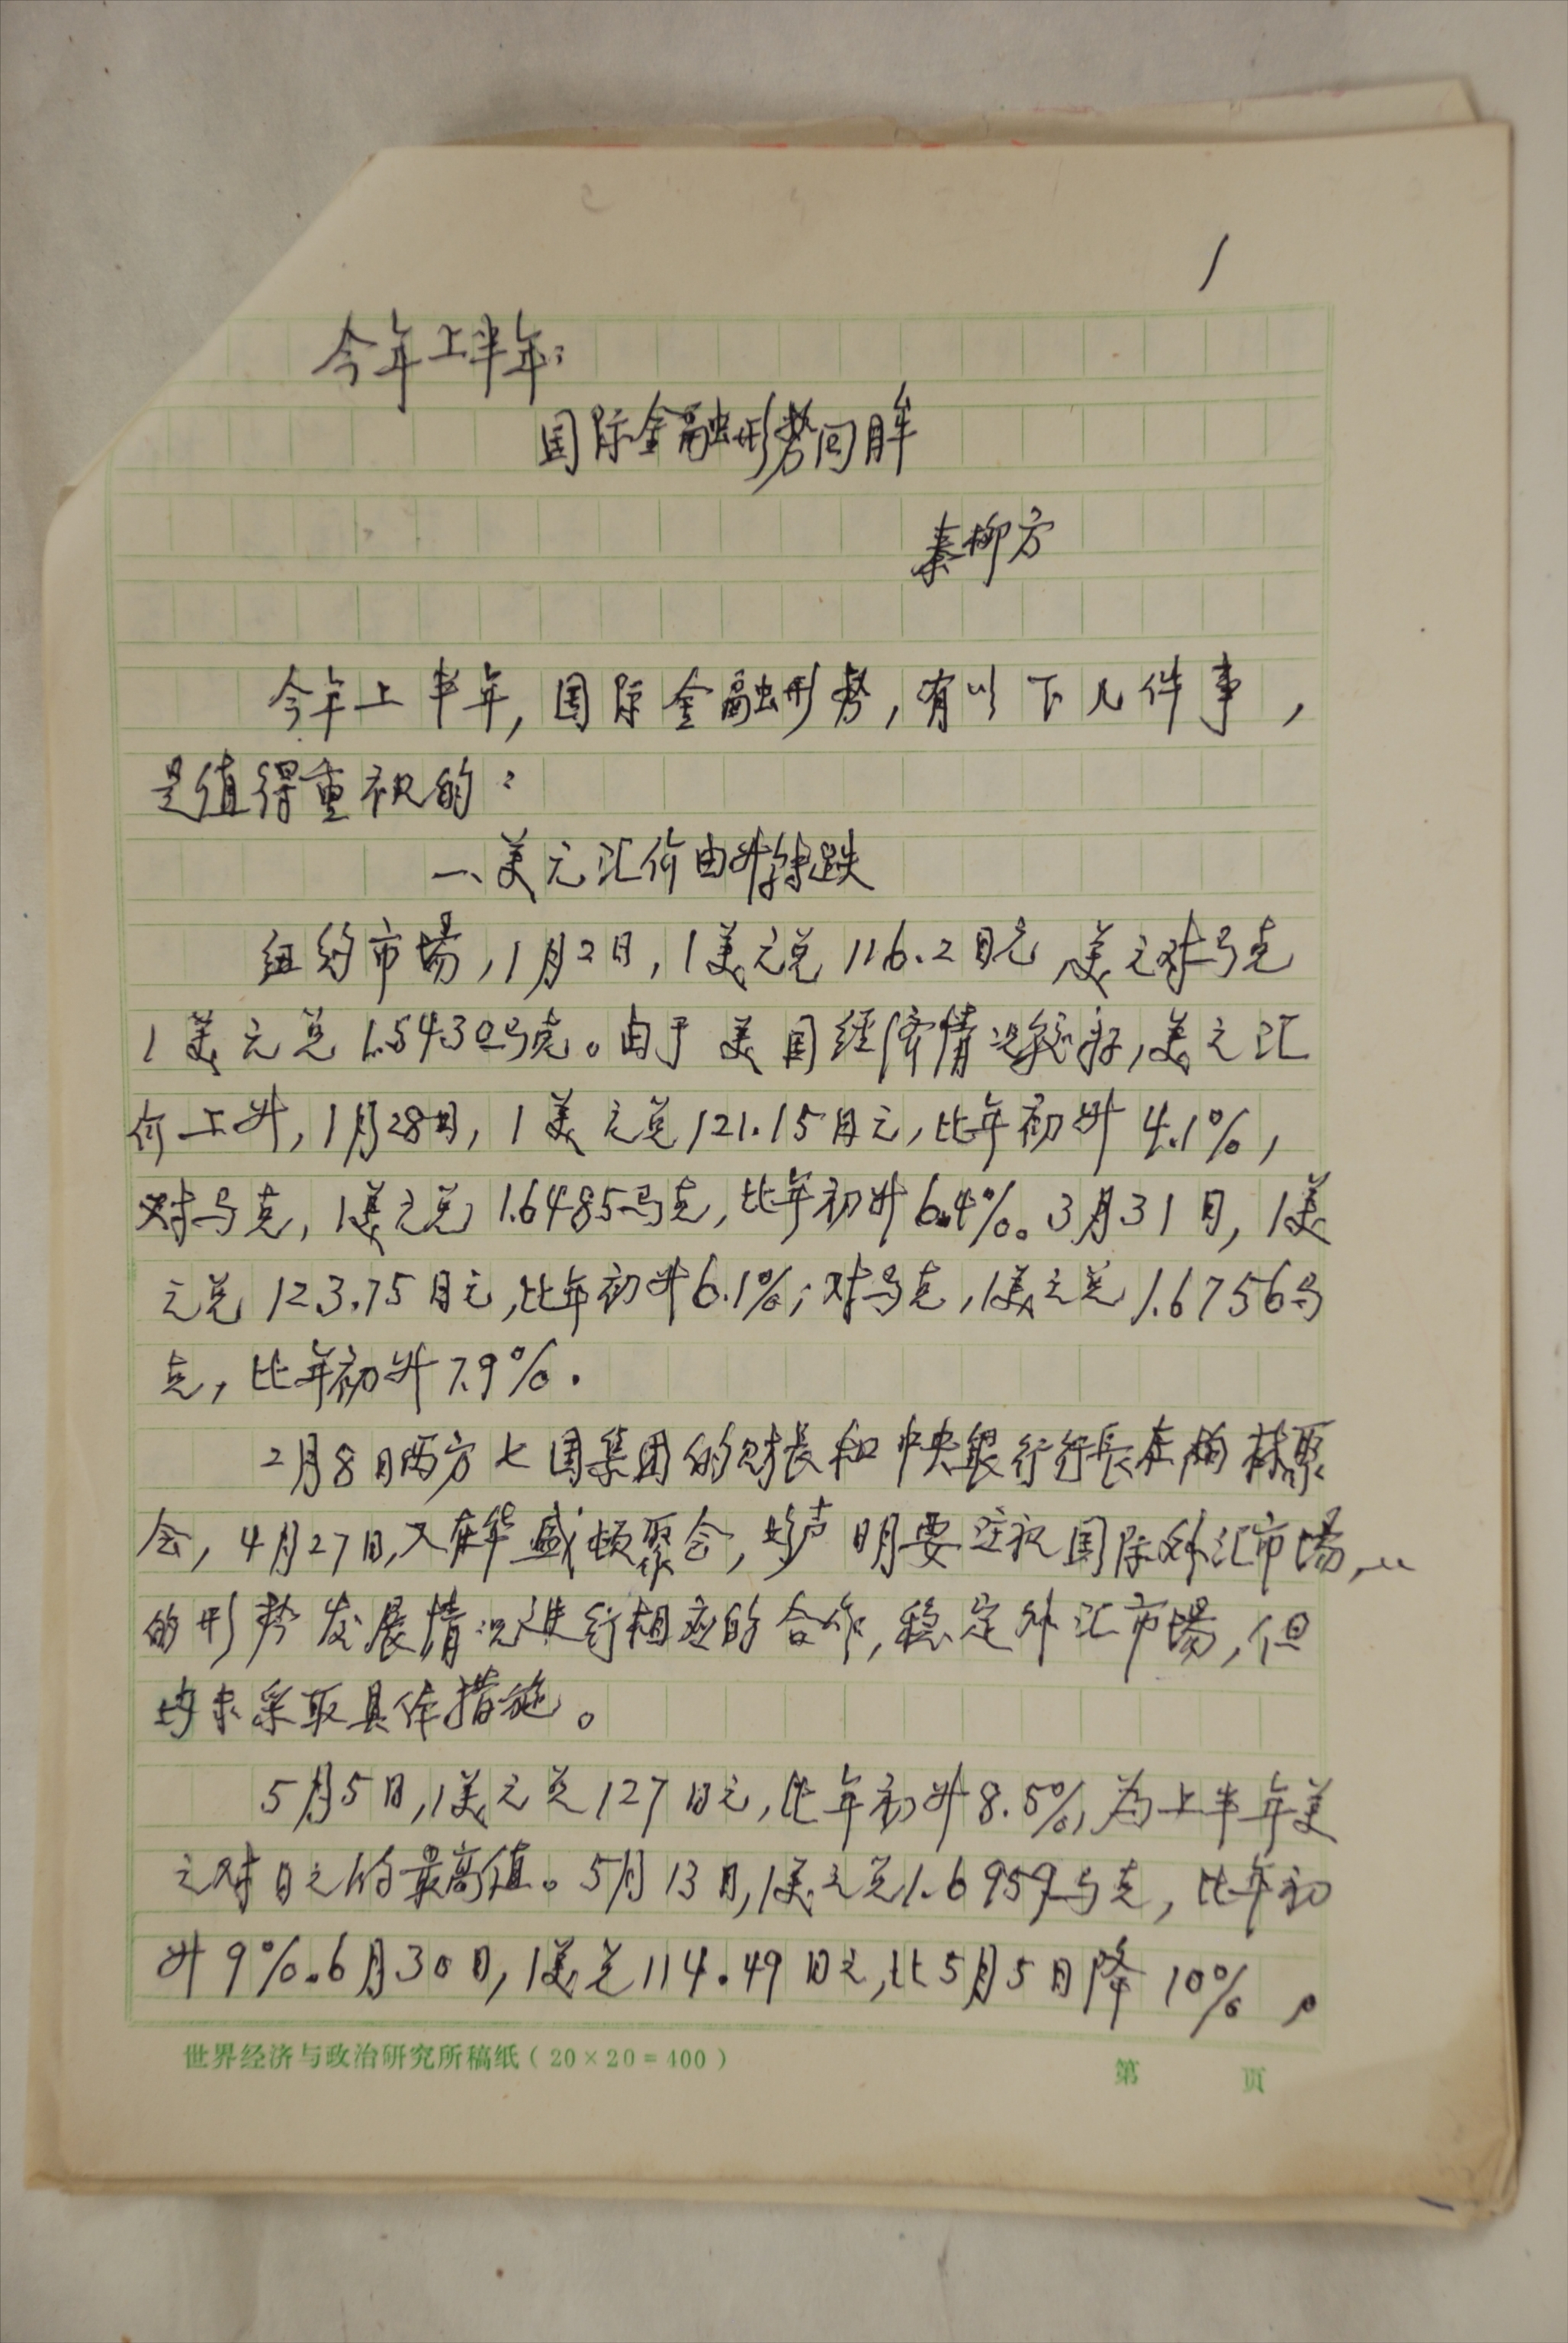 1
今年上半年：
国际金融形势回眸
秦柳方
今年上半年，国际金融形势，有以下几件事，
是值得重视的：
一、美元汇价由升转跌
纽约市场，1月2日，1美元兑116.2日元，美元对马克
1美元兑1.5430马克。由于美国经济情况较好，美元汇
价上升，1月28日，1美元兑121.15日元，比年初升4.1%，
对马克，1美元兑1.6485马克，比年初升6.4%。3月31日，1美
元兑123.75日元，比年初升6.1%；对马克，1美元兑1.6756马
克，比年初升7.9%.
2月8日西方七国集团的财长和中央银行行长在柏林聚
会，4月27日，又在华盛顿聚会，均声明要注视国际外汇市场，
的形势发展情况进行相应的合作，稳定外汇市场，但
均未采取具体措施。
5月5日，1美元兑127日元，比年初升8.5%，为上半年美
元对日元的最高值。5月13日，1美元兑1.6959马克，比年初
升9%.6月30日，1美兑114.49日元，比5月5日降10%。
世界经济与政治研究所稿纸（20×20=400）
第 页